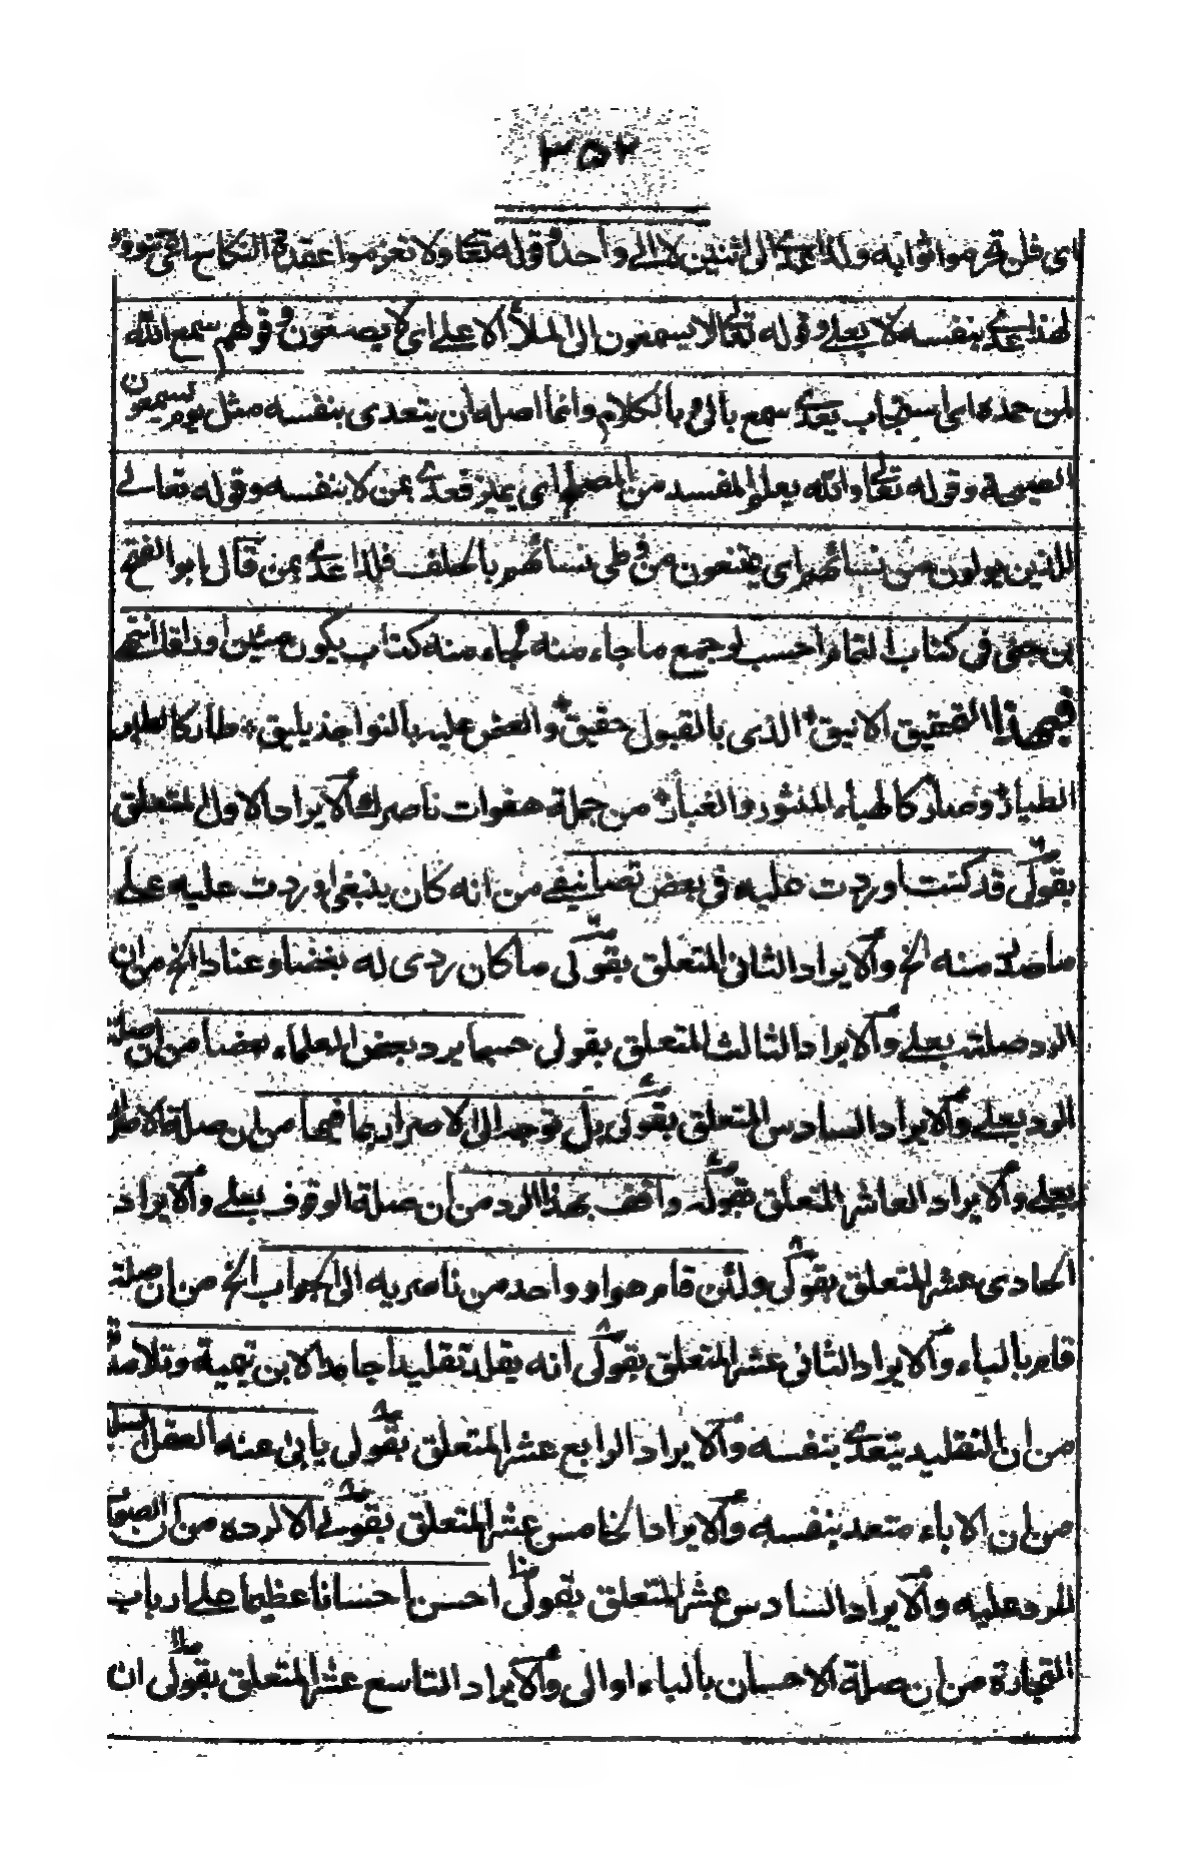 ٣٥٢
اى فلن تحرموا ثوابه ولذا عدى الى اثنين لا الى واحد وقوله تعالى ولا تعزموا عقدة النكاح اى تنووا
لهذا عدى بنفسه لا بعلى وقوله تعالى لا يسمعون الى الملأ الاعلى اى لا يصغون وقولهم سمع الله
لمن حمده اى استجاب فعدى سمع بالى و باللام وانما اصله ان يتعدى بنفسه مثل يوم يسمعون
الصيحة وقوله تعالى والله يعلم المفسد من المصلح اى يميز فعدى بمن لا بنفسه وقوله تعالى
للذين يولون من نسائهم اى يمتنعون من وطى نسائهم بالحلف فلذا عدى بمن قال ابو الفتح
بن جنى فى كتاب التمام احسب لو جمع ما جاء منه لجاء منه كتاب يكون مئين اوراقا انتهى
فبهذا التحقيق الانيق الذى بالقبول حقيق والعض عليه بالنواجذ يليق طار كالطير
الطيار وصار كالهباء المنثور والغبار من جملة هفوات ناصرك الايراد الاول المتعلق
بقولى قد كنت اوردت عليه فى بعض تصانيفى من انه كان ينبغى اوردت عليه على
ما صدر منه الخ والايراد الثانى المتعلق بقولى ما كان ردى له بغضا وعنادا الخ من ان
الرد صلته بعلى والايراد الثالث المتعلق بقولى حسبما يرد بعض العلماء بعضا من ان صلته
الرد بعلى والايراد السادس المتعلق بقولى بل توجه الى الاصرار بما فيها من ان صلة الاصرار
بعلى والايراد العاشر المتعلق بقوله واقف بهذا الرد من ان صلة الوقوف بعلى والايراد
الحادى عشر المتعلق بقولى ولئن قام هو او واحد من ناصريه الى الجواب الخ من ان صلة
قام بالباء والايراد الثانى عشر المتعلق بقولى انه يقلد تقليدا جامدا لابن تيمية وتلامذته
من ان التقليد يتعدى بنفسه والايراد الرابع عشر المتعلق بقولى يأبى عنه العقل السليم
من ان الاباء متعد بنفسه والايراد الخامس عشر المتعلق بقولى الا لرده من ان الصواب
الرد عليه والايراد السادس عشر المتعلق بقولى احسن احسانا عظيما على ارباب
التجارة من ان صلة الاحسان بالباء او الى والايراد التاسع عشر المتعلق بقولى ان